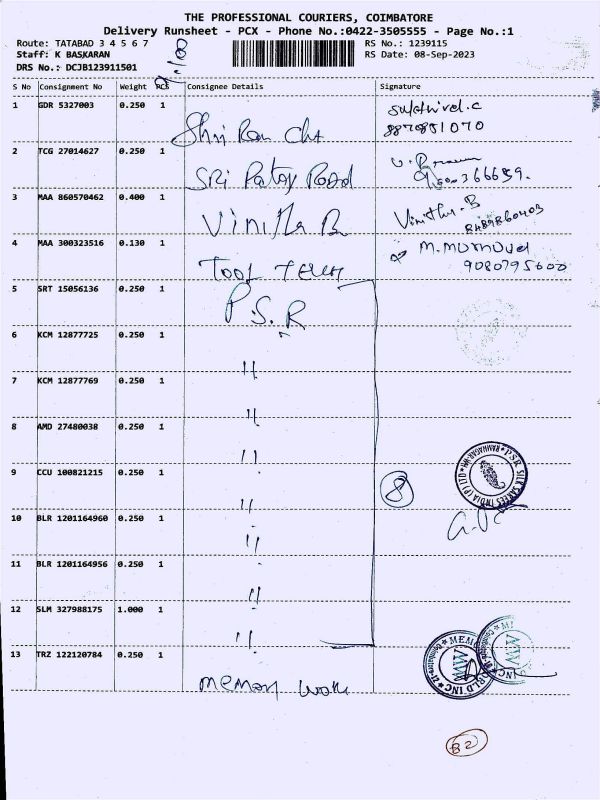 THE PROFESSIONAL COURIERS, COIMBATORE
Delivery Runsheet - PCX - Phone No.:0422-3505555 - Page No.:1
Route: TATABAD 3 4 5 6 7 RS No.: 1239115
Staff: K BASKARAN RS Date: 08-Sep-2023
DRS No.: DCJB123911501
S No Consignment No Weight PCS Consignee Details Signature
1 GDR 5327003 0.250 1
8870851070
2 TCG 27014627 0.250 1 SRI Road
3 MAA 860570462 0.400 1 Vinitha B Vinitha.B
8489860403
4 MAA 300323516 0.130 1 TOOL TECH
9080795600
5 SRT 15056136 0.250 1 P.S.R
6 KCM 12877725 0.250 1 "
7 KCM 12877769 0.250 1 "
8 AMD 27480038 0.250 1 "
9 CCU 100821215 0.250 1 " 8 PSR SILK SAREES INDIA (P) LTD
10 BLR 1201164960 0.250 1 "
11 BLR 1201164956 0.250 1 "
12 SLM 327988175 1.000 1 "
13 TRZ 122120784 0.250 1 memory MW
82